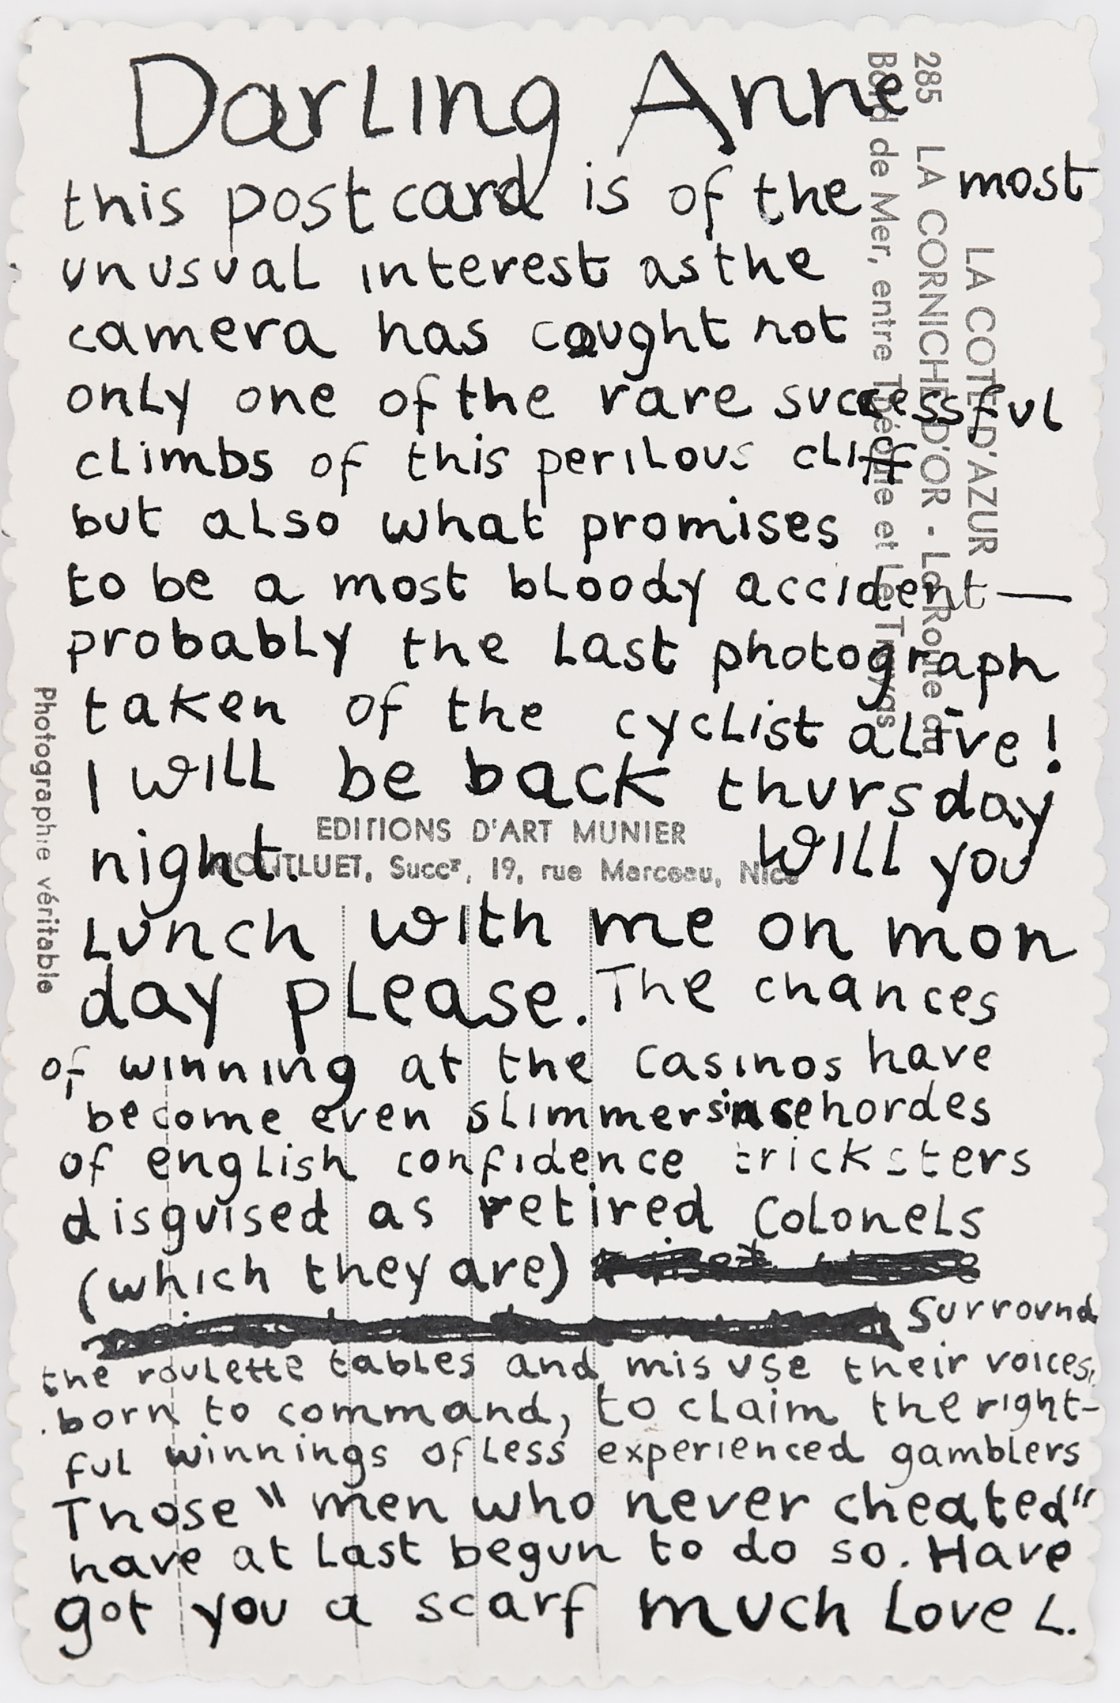 Darling Anne
this postcard is of the most
unusual interest as the
camera has caught not
only one of the rare successful
climbs of this perilous cliff
but also what promises
to be a most bloody accident —
probably the last photograph
taken of the cyclist alive!
I will be back thursday
night. Will you
lunch with me on mon
day please. The chances
of winning at the casinos have
become even slimmer since hordes
of english confidence tricksters
disguised as retired Colonels
(which they are)
surround
the roulette tables and misuse their voices,
born to command, to claim the right-
ful winnings of less experienced gamblers
Those "men who never cheated"
have at last begun to do so. Have
got you a scarf much love L.
LA COTE D'AZUR
285 LA CORNICHE D'OR - La Route du
Bord de Mer, entre Théoule et Le Trayas
Photographie véritable
EDITIONS D'ART MUNIER
MOUTLUET, Succr, 19, rue Marceau, Nice